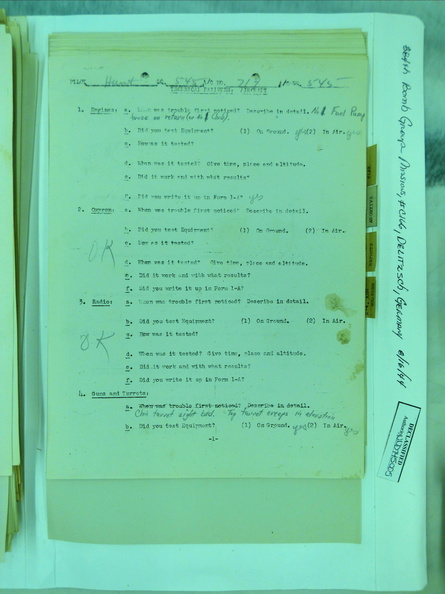 Hunt 545 217 545
1. Engines: a. When was trouble first noticed? Describe in detail. No 1 Fuel Pump
b. Did you test Equipment? (1) On Ground. yes (2) In Air. yes
c. How was it tested?
d. When was it tested? Give time, place and altitude.
e. Did it work and with what results?
f. Did you write it up in Form 1-A? yes
2. a. When was trouble first noticed? Describe in detail.
b. Did you test Equipment? (1) On Ground. (2) In Air.
OK
c. How was it tested?
d. When was it tested? Give time, place and altitude.
e. Did it work and with what results?
f. Did you write it up in Form 1-A?
3. Radio: a. When was trouble first noticed? Describe in detail.
b. Did you test Equipment? (1) On Ground. (2) In Air.
OK
c. How was it tested?
d. When was it tested? Give time, place and altitude.
e. Did it work and with what results?
f. Did you write it up in Form 1-A?
4. Guns and Turrets:
a. When was trouble first noticed? Describe in detail.
turret sight bad. turret creeps in elevation
b. Did you test Equipment? (1) On Ground. yes (2) In Air. yes
-1-
384th Bomb Group Mission, #166, Delitzsch, Germany 8/16/44
DECLASSIFIED